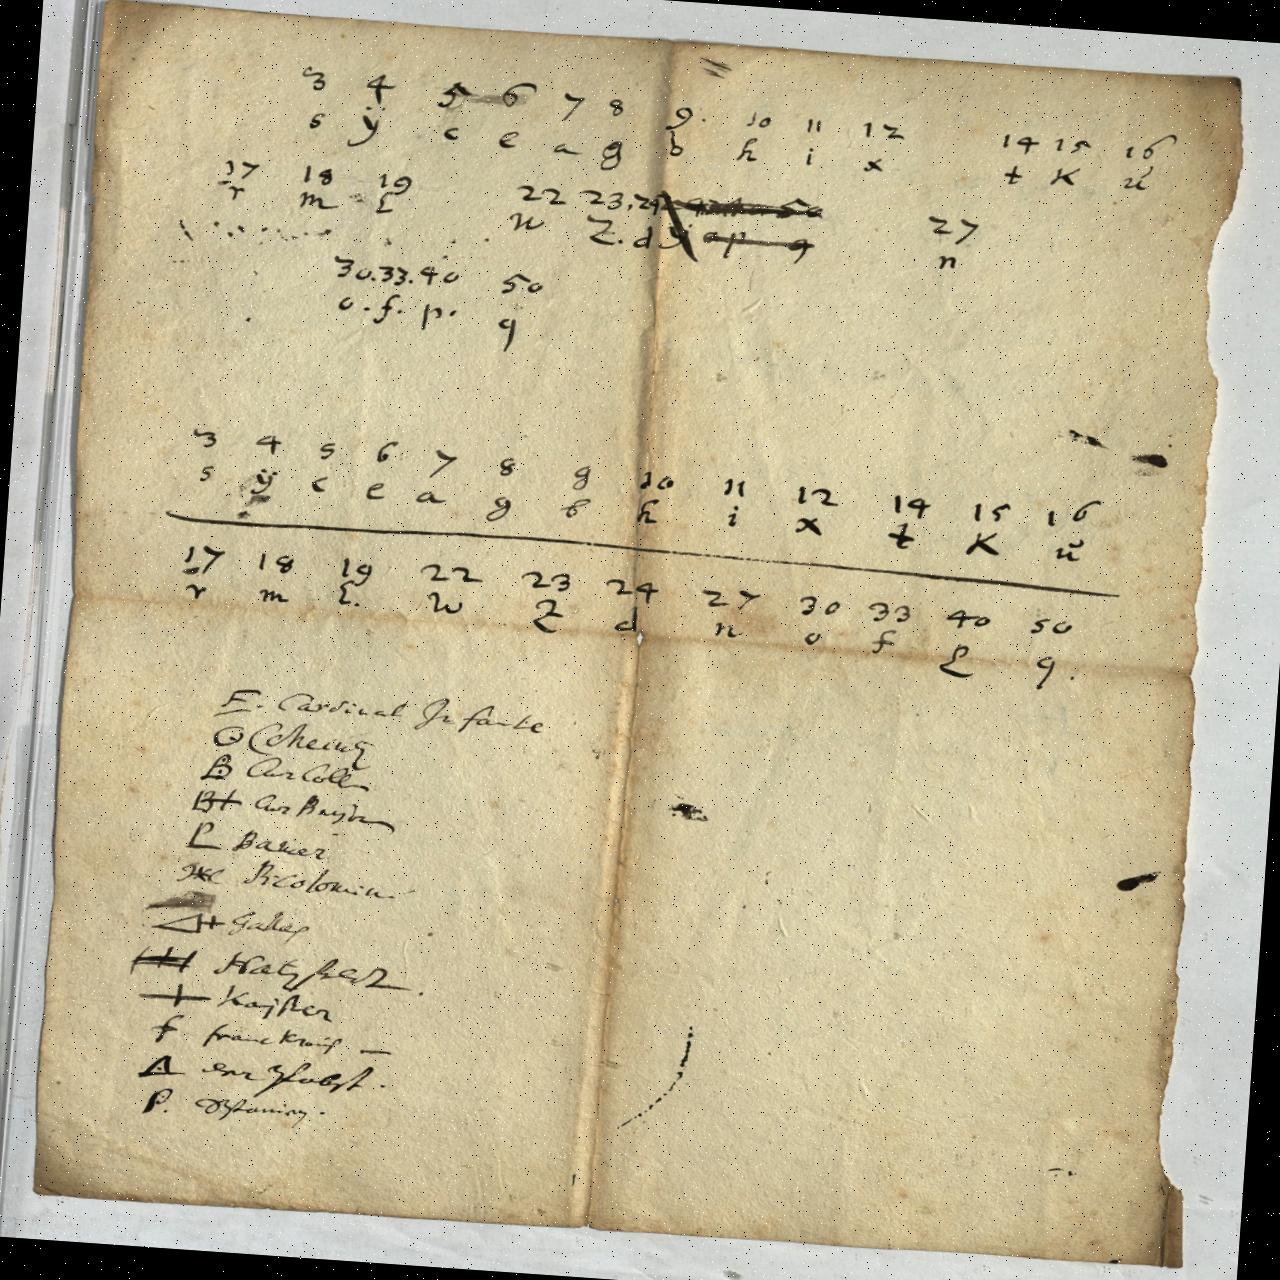 3 4 5 6 7 8 9. 10 11 12 14 15 16
s ÿ c e a g b h i x t K ŭ
17 18 19 22 23. 24 27
r m L w Z. d n
30. 33. 40 50
o. f. p. q
3 4 5 6 7 8 9 10 11 12 14 15 16
s ÿ c e a g b h i x t K ŭ
17 18 19 22 23 24 27 30 33 40 50
r m L. w Z d n o f q.
E. Cardinal Infante
B Cur Colln
B+ Cur Bayrn
L Baner
Picolomin.
Galas
Hatzfeldt.
+ Kayser
f franckreich
Δ der Pabst.
P.